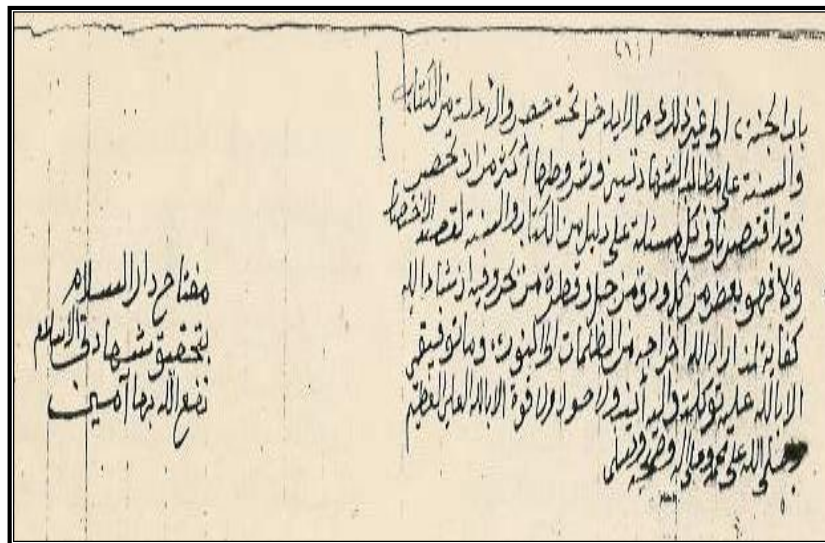 (١٦)
باب الجنة، الى غير ذلك مما لا يدخل تحت حصر والأدلة من الكتاب
والسنة على مطالب الشهادتين وشروطها أكثر من ان تحصر
وقد اقتصرنا في كل مسئلة على دليل من الكتاب والسنة لقصد الاختصار
والا فهو بعض من كل وذرة من جبل وقطرة من بحر وفيه ان شاء الله
كفاية لمن اراد الله اخراجه من الظلمات الى النور، وما توفيقي
الا بالله عليه توكلت واليه أنيب ولا حول ولا قوة الا بالله العلي العظيم
وصلى الله على محمد وعلى آله وصحبه وسلم
مفتاح دار السلام
بتحقيق شهادتي الاسلام
نفع الله بها آمين